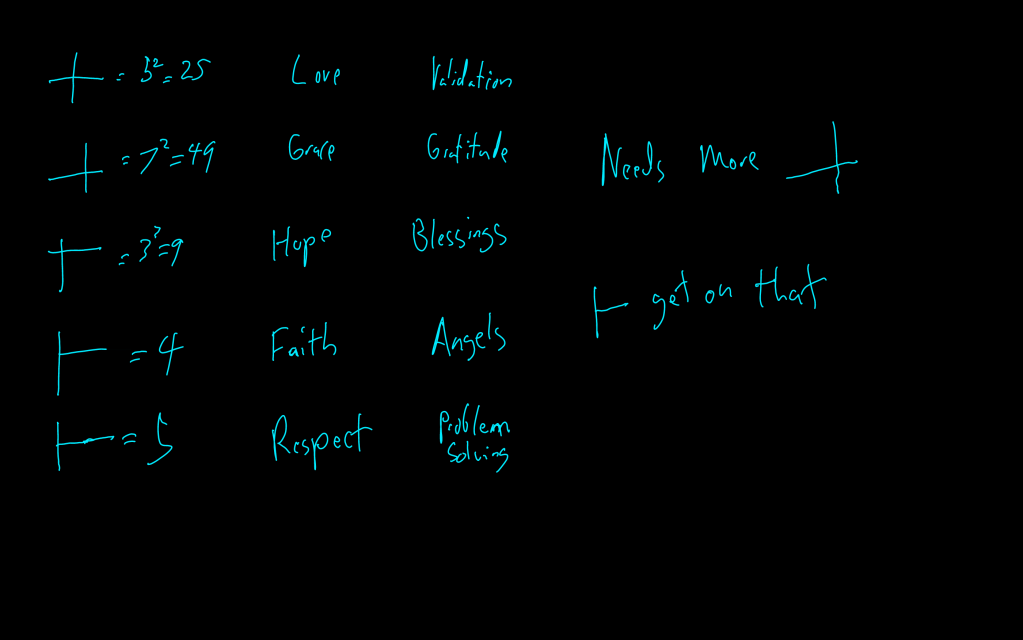 = 5²=25 Love Validation
= 7²=49 Grace Gratitude
= 3²=9 Hope Blessings
= 4 Faith Angels
= 5 Respect Problem Solving
Needs More
get on that